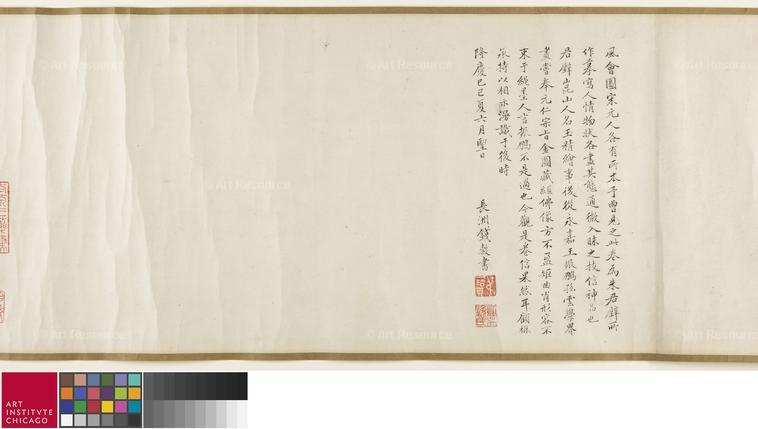 風會圖宋元人各有所本予曾見之此卷爲朱君璧所
作摹寫人情物狀各盡其態通微入昧之技信神品也
君璧崑山人名玉精繪事後從永嘉王振鵬孤雲學界
畫嘗奉元仁宗旨金圖藏經佛像方不盈矩曲肖形容不
束于繩墨人言振鵬不是過也今觀是卷信果然耳頤
承持以相示漫識于後時
隆慶己巳夏六月望日
長洲錢穀書
ART
INSTITVTE
CHICAGO
© Art Resource
© Art Resource
© Art Resource
© Art Resource
© Art Resource
© Art Resource